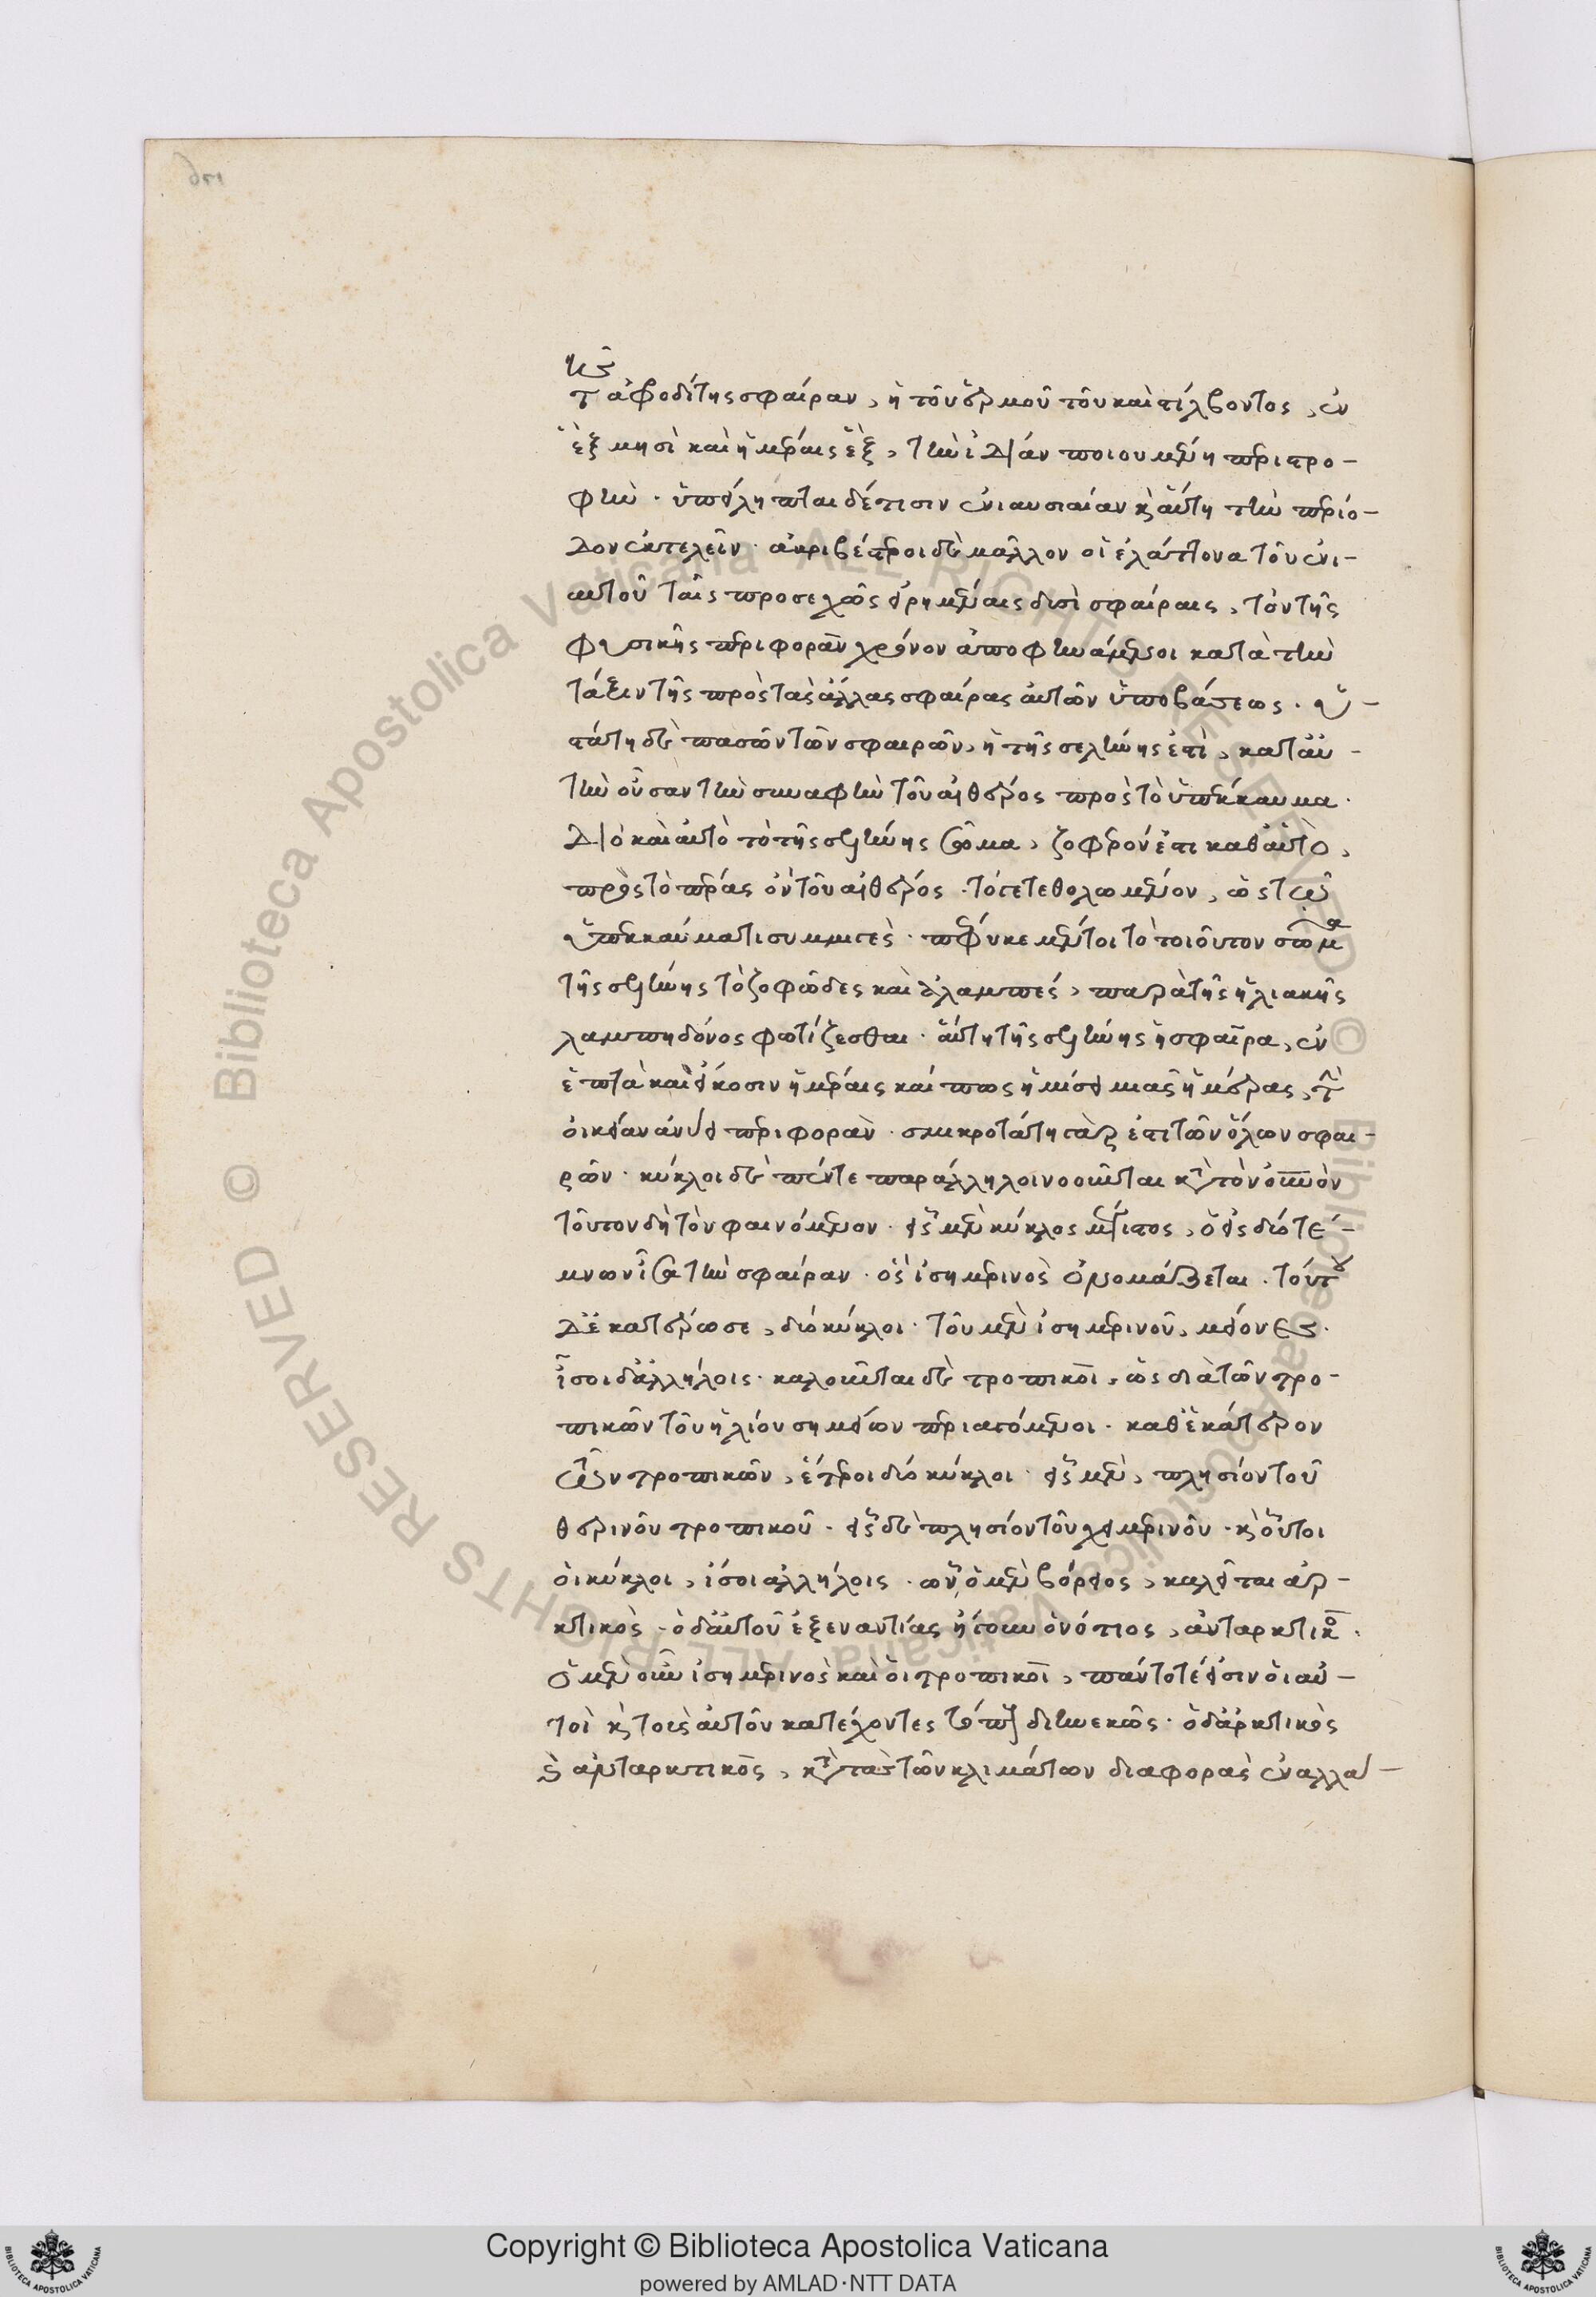 τ ἀφροδίτης σφαῖραν, ἡ τοῦ ἑρμοῦ τοῦ καὶ στίλβοντος, ἐν
ἓξ μησὶ καὶ ἡμέραις ἓξ, τὴν ἰδίαν ποιουμένη περιστρο-
φήν. ὑπείληπται δέ τισιν ἐνιαυσιαίαν κ αὕτη τὴν περίο-
δον ἐκτελεῖν. ἀκριβέστεροι δὲ μᾶλλον οἱ ἐλάττονα τοῦ ἐνι-
αυτοῦ ταῖς προσεχῶς εἰρημέναις δυσὶ σφαίραις, τὸν τῆς
φυσικῆς περιφορᾶν χρόνον ἀποφηνάμενοι κατὰ τὴν
τάξιν τῆς πρὸς τὰς ἄλλας σφαίρας αὐτῶν ὑποβάσεως. ὑ-
στάτη δὲ πασῶν τῶν σφαιρῶν, ἡ τῆς σελήνης ἐστὶ, κατ αὐ-
τὴν οὖσαν τὴν συναφὴν τοῦ αἰθέρος πρὸς τὸ ὑπέκκαυμα.
Διὸ καὶ αὐτὸ τὸ τῆς σελήνης σῶμα, ζοφερόν ἐστι καθ αὑτὸ,
πρὸς τὸ πέρας ὂν τοῦ αἰθέρος. τό τε τεθολωμένον, ὡς τῷ
ὑπεκκαύματι συμμιγές. πέφυκε μέντοι τὸ τοιοῦτον σῶμα
τῆς σελήνης τὸ ζοφῶδες καὶ ἀλαμπές, παρὰ τῆς ἡλιακῆς
λαμπηδόνος φωτίζεσθαι. αὕτη τῆς σελήνης ἡ σφαῖρα, ἐν
ἑπτὰ καὶ εἴκοσιν ἡμέραις καί πως ἡμίσει μιᾶς ἡμέρας, τὴν
οἰκείαν ἀνύει περιφορὰν. σμικροτάτη γὰρ ἐστι τῶν ὅλων σφαι-
ρῶν. κύκλοι δὲ πέντε παράλληλοι νοοῦνται κατὰ τὸν οὐνὸν
τοῦτον δὴ τὸν φαινόμενον. εἷς μὲν κύκλος μέγιστος, ὁ εἰς δύο τέ-
μνων ἶσα τὴν σφαίραν. ὃς ἰσημερινὸς ὀνομάζεται. τούτου
Δὲ κατέρωσε, δύο κύκλοι. τοῦ μὲν ἰσημερινοῦ, μείονες.
ἶσοι δ ἀλλήλοις. καλοῦνται δὲ τροπικοὶ, ὡς διὰ τῶν τρο-
πικῶν τοῦ ἡλίου σημείων περιαγόμενοι. καθ ἑκάτερον
τῶν τροπικῶν, ἕτεροι δύο κύκλοι. εἷς μὲν, πλησίον τοῦ
θερινοῦ τροπικοῦ. εἷς δὲ πλησίον τοῦ χειμερινοῦ. κ οὗτοι
οἱ κύκλοι, ἴσοι ἀλλήλοις. ὧν ὁ μὲν βόρειος, καλεῖται ἀρ-
κτικὸς. ὁ δ αὐτοῦ ἐξεναντίας ἤτουν ὁ νότιος, ἀνταρκτικὸς.
ὁ μὲν οὖν ἰσημερινὸς καὶ οἱ τροπικοὶ, πάντοτέ εἰσιν οἱ αὐ-
τοὶ κ τοὺς αὐτοὺς κατέχοντες τόπους διηνεκῶς. ὁ δ ἀρκτικὸς
κ ἀνταρκτικὸς, κατὰ τὰς τῶν κλιμάτων διαφορὰς ἐναλλα-